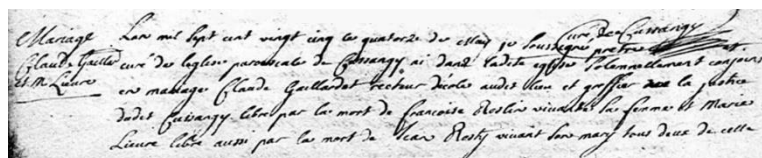 Mariage
Claude Gaillar
et M. Lieure
Cure de Cussangy
Lan mil sept cent vingt cinq le quatorze de may je soussigné pretre
curé de leglise paroissiale de Cussangy ai dans ladite eglise solemnellement conjoint
en mariage Claude Gaillardet recteur décole audit lieu et greffier de la justice
dudit Cussangy libre par la mort de francoise Roslin vivante sa femme et Marie
Lieure libre aussi par la mort de Jean Rosty vivant son mary tous deux de cette